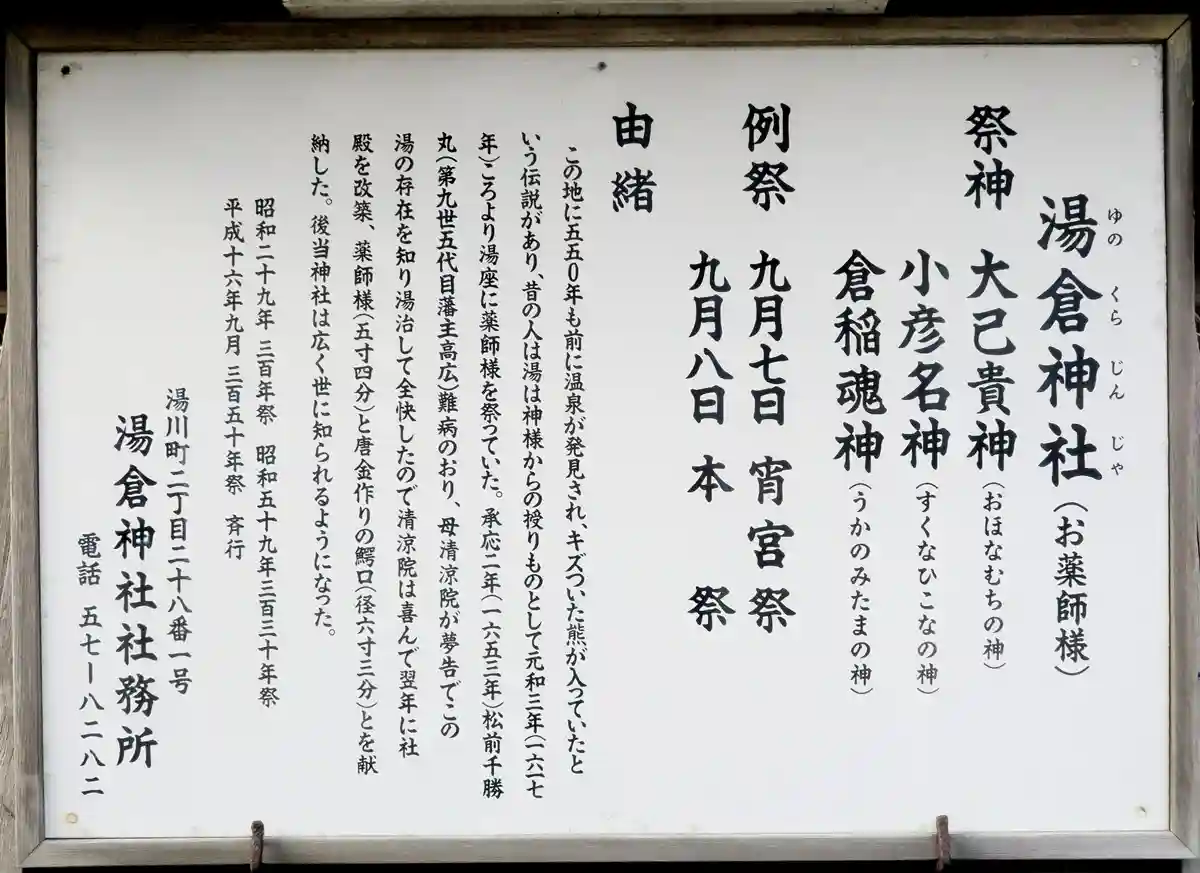 湯倉神社(お薬師様)
ゆの くら じん じゃ
祭神 大己貴神(おほなむちの神)
小彦名神(すくなひこなの神)
倉稲魂神(うかのみたまの神)
例祭 九月七日 宵宮祭
九月八日 本祭
由緒
この地に五五0年も前に温泉が発見され、キズついた熊が入っていたと
いう伝説があり、昔の人は湯は神様からの授りものとして元和三年(一六一七
年)ころより湯座に薬師様を祭っていた。承応二年(一六五三年)松前千勝
丸(第九世五代目藩主高広)難病のおり、母清涼院が夢告でこの
湯の存在を知り湯治して全快したので清涼院は喜んで翌年に社
殿を改築、薬師様(五寸四分)と唐金作りの鰐口(径六寸三分)とを献
納した。後当神社は広く世に知られるようになった。
昭和二十九年 三百年祭 昭和五十九年三百三十年祭
平成十六年九月 三百五十年祭 斉行
湯川町二丁目二十八番一号
湯倉神社社務所
電話 五七ー八二八二